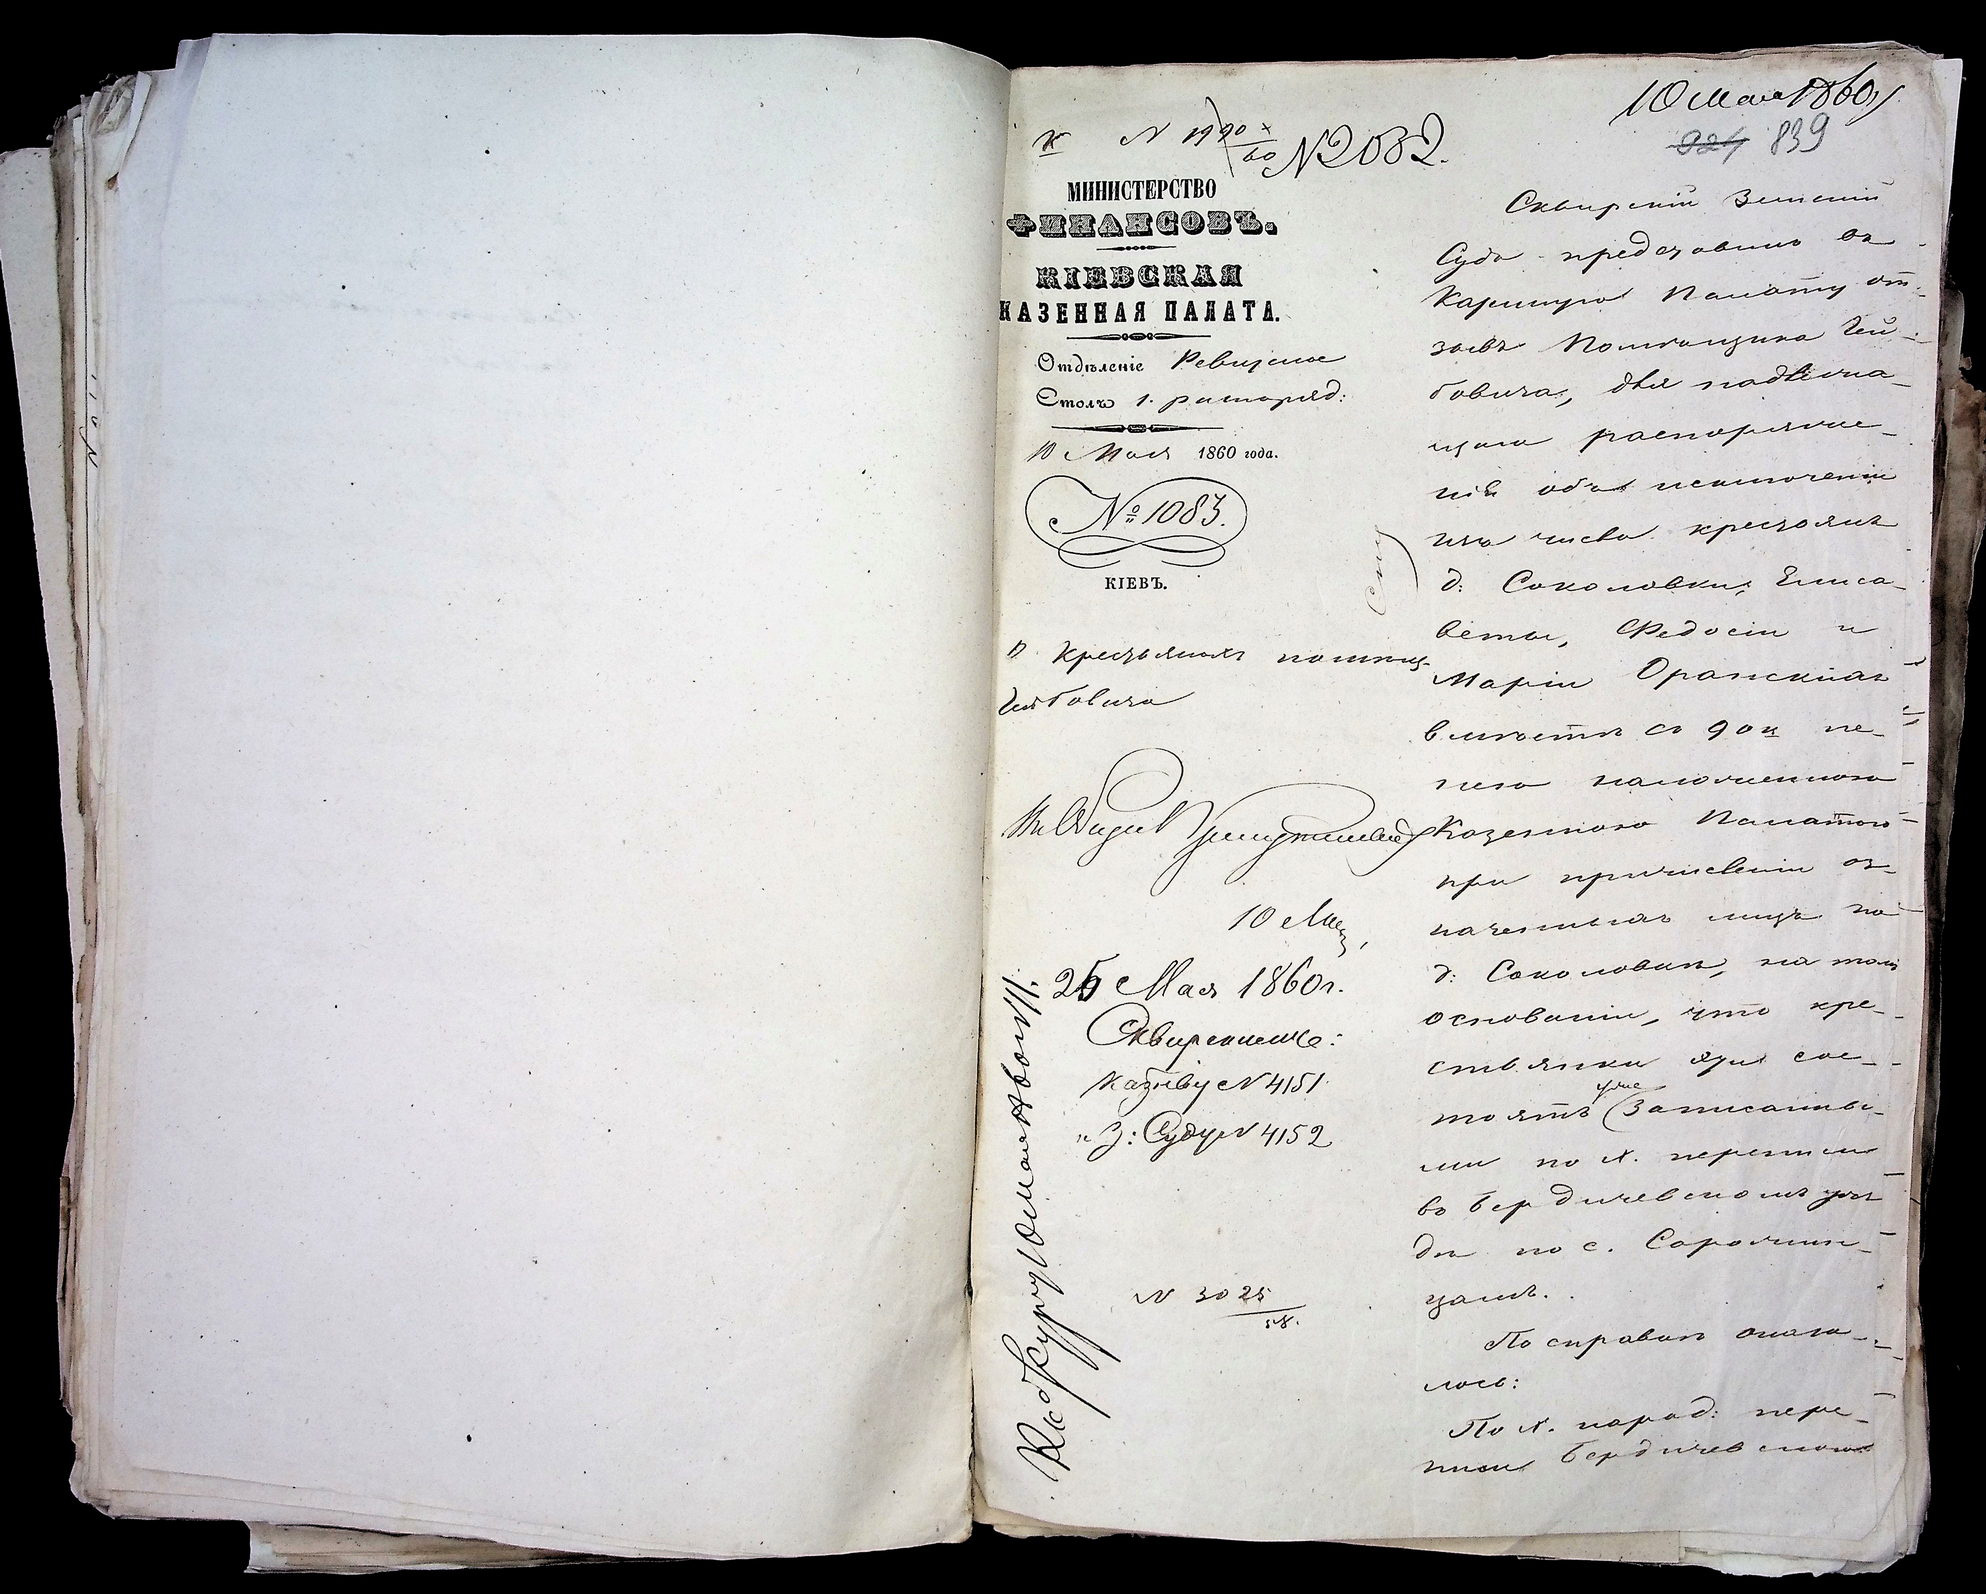 10 Мая 1860 г.
839
N 1990/60 N 2082.
МИНИСТЕРСТВО
ФИНАНСОВЪ.
КІЕВСКАЯ
КАЗЕННАЯ ПАЛАТА.
Отдѣленіе Ревизское
Столъ 1. распоряд:
10 Мая 1860 года.
№ 1083.
КІЕВЪ.
о крестьянахъ помѣщ.
Гейбовича
10 Мая
25 Мая 1860 г.
Сквирскому:
Казнву N 4151
" З: Суду N 4152
N 3025
Сквирскій Земскій
Судъ представилъ въ
Казенную Палату от-
зывъ Помѣщика Гей-
бовича, для надлежа-
щаго распоряже-
нія объ исключеніи
изъ числа крестьянъ
д: Соколовки, Елиса-
веты, Федосіи и
Маріи
вмѣстѣ съ 90 к пе-
нею наложенною
Казенною Палатою
при причисленіи оз-
наченныхъ лицъ по
д: Соколовкѣ, на томъ
основаніи, что кре-
стьянки эти сос-
тоятъ уже записаны-
ми по X. переписи
въ Бердичевскомъ уѣз-
дѣ по с. Сорочин-
цамъ.
По справкѣ оказа-
лось:
По X. народ: пере-
писи Бердичевскаго